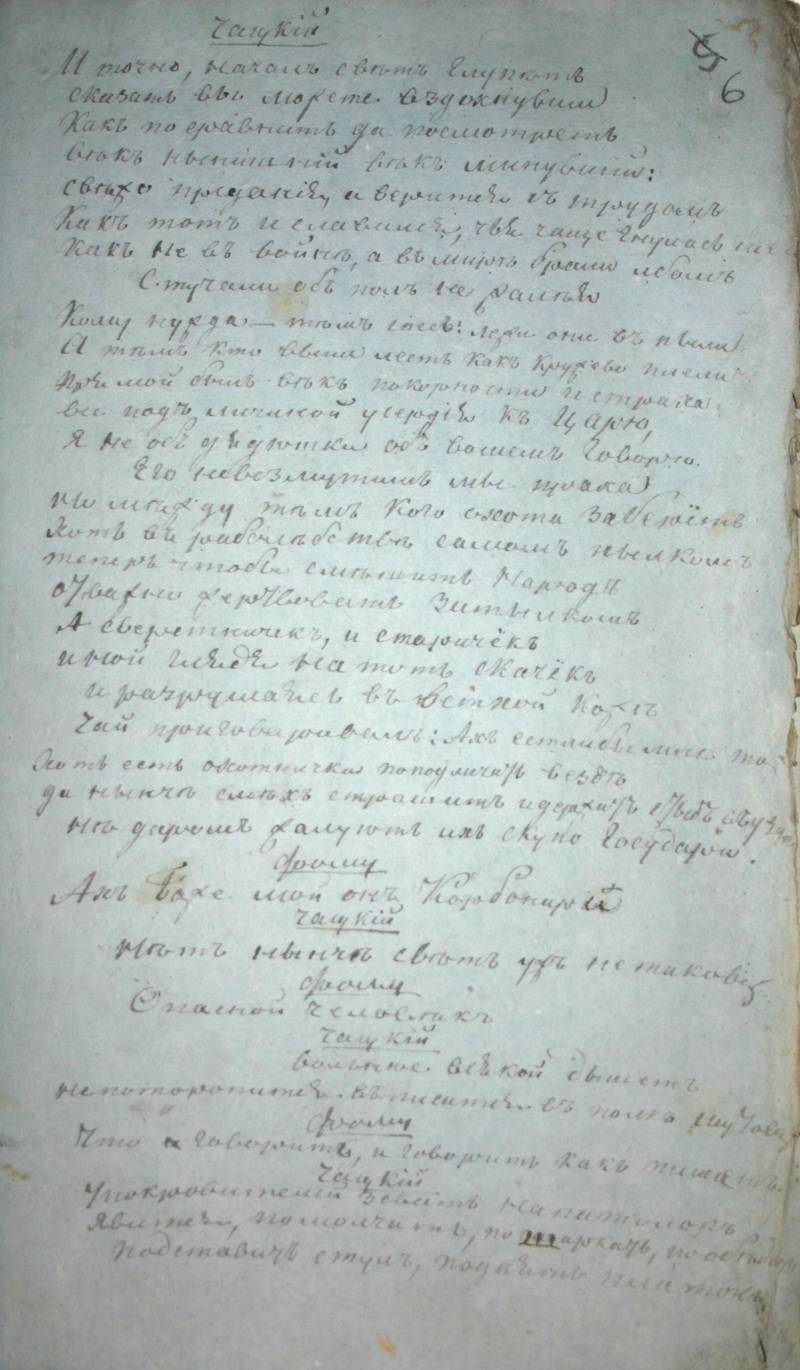 Чацкій
6
И точно, началъ свѣтъ глупѣть
сказать вы можете вздохнувши
Какъ посравнить да посмотреть
вѣкъ нынѣшній вѣкъ минувший:
свѣжо преданіе, и верится съ трудомъ
Какъ тотъ и славился, чья чаще гнулась
Какъ не въ войнѣ, а въ мирѣ брали лбомъ
Стучали объ полъ не жалѣя
Кому нужда — тѣмъ спесь: лежи они въ пыли
А тѣмъ кто выше лесть какъ кружево плели
Прямой былъ вѣкъ покорности и страха
все подъ личиной усердія къ Царю,
Я не объ дядюшке объ вашемъ говорю.
Его невозмутимъ мы праха
но между тѣмъ кого охота заберіотъ
Хоть въ раболѣбствѣ самомъ пылкомъ
теперь чтобы смѣшить Народъ
отважно жертвовать затылкомъ
А сверстничек, и старичёкъ
иной глядя на тотъ скачёкъ
и разрушаясь въ ветхой кожѣ
Чай приговаривалъ: Ахъ естлибы мнѣ
Хоть есть охотники поподличать вездѣ
да нынче смѣхъ страшитъ и держитъ стыдъ въ уздѣ
не даромъ жалуютъ ихъ скупо Государи.
Фаму
Ахъ Боже мой онъ Карбонарій
Чацкій
Нѣтъ нынче свѣтъ ужъ не таковъ
Фаму
Опасной человѣкъ
Чацкій
вольнѣе всякой дышетъ
не поторопится вписатся въ полкъ шутовъ
Фаму
Что говоритъ, и говоритъ какъ пишетъ.
Чацкій
У покровителей зевать на патолокъ
явится, помолчать, пошаркать, пообѣдать
подставить стулъ, поднять платокъ